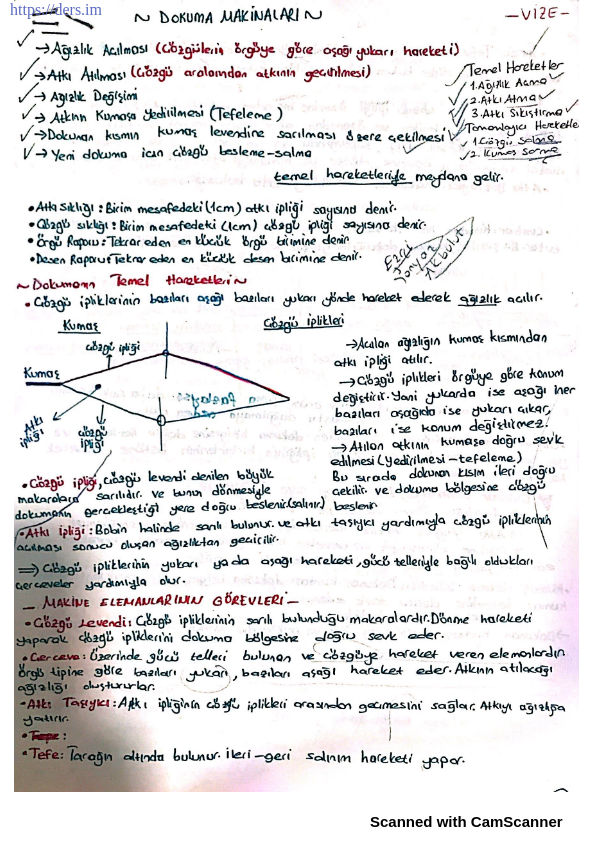 https://ders.im
~ DOKUMA MAKİNALARI ~
-VİZE-
→Ağızlık Açılması (Çözgülerin örgüye göre aşağı yukarı hareketi)
→Atkı Atılması (Çözgü aralarından atkının geçirilmesi)
→ Ağızlık Değişimi
→ Atkının Kumaşa Yedirilmesi (Tefeleme)
→Dokunan kısmın kumaş levendine sarılması üzere çekilmesi
→ Yeni dokuma için çözgü besleme-salma
Temel Hareketler
1.Ağızlık Açma
2.Atkı Atma
3.Atkı Sıkıştırma
Tamamlayıcı Hareketler
1.Çözgü Salma
2. Kumaş Sarma
temel hareketleriyle meydana gelir.
•Atkı Sıklığı: Birim mesafedeki (1cm) atkı ipliği sayısına denir.
•Çözgü sıklığı: Birim mesafedeki (1cm) çözgü ipliği sayısına denir.
•Örgü Raporu: Tekrar eden en küçük örgü birimine denir
•Desen Raporu: Tekrar eden en küçük desen birimine denir.
Ezgi
Akbulut
~Dokumanın Temel Hareketleri~
• Çözgü ipliklerinin bazıları aşağı bazıları yukarı yönde hareket ederek ağızlık açılır.
Kumaş
Çözgü iplikleri
çözgü ipliği
Kumaş
Atkı ipliği
çözgü ipliği
→Açılan ağızlığın kumaş kısmından
atkı ipliği atılır.
→Çözgü iplikleri örgüye göre konum
değiştirir. Yani yukarda ise aşağı iner
bazıları aşağıda ise yukarı çıkar,
bazıları ise konum değiştirmez!
→ Atılan atkının kumaşa doğru sevk
edilmesi (yedirilmesi-tefeleme)
Bu sırada dokunan kısım ileri doğru
çekilir. ve dokuma bölgesine çözgü
beslenir
•Çözgü ipliği, çözgü levendi denilen büyük
makaralara sarılıdır. ve bunun dönmesiyle
dokumanın gerçekleştiği yere doğru beslenir.(salınır)
•Atkı ipliği: Bobin halinde sarılı bulunur. ve atkı taşıyıcı yardımıyla çözgü ipliklerinin
açılması sonucu oluşan ağızlıktan geçirilir.
⇒ Çözgü ipliklerinin yukarı ya da aşağı hareketi, gücü telleriyle bağlı oldukları
çerçeveler yardımıyla olur.
- MAKİNE ELEMANLARININ GÖREVLERİ -
•Çözgü Levendi: Çözgü ipliklerinin sarılı bulunduğu makaralardır. Dönme hareketi
yaparak çözgü ipliklerini dokuma bölgesine doğru sevk eder.
•Çerçeve: Üzerinde gücü telleri bulunan ve çözgüye hareket veren elemanlardır.
Örgü tipine göre bazıları yukarı, bazıları aşağı hareket eder. Atkının atılacağı
ağızlığı oluştururlar.
•Atkı Taşıyıcı: Atkı ipliğinin çözgü iplikleri arasından geçmesini sağlar. Atkıyı ağızlığa
yatırır.
•Tefe: Tarağın altında bulunur. İleri-geri salınım hareketi yapar.
Scanned with CamScanner